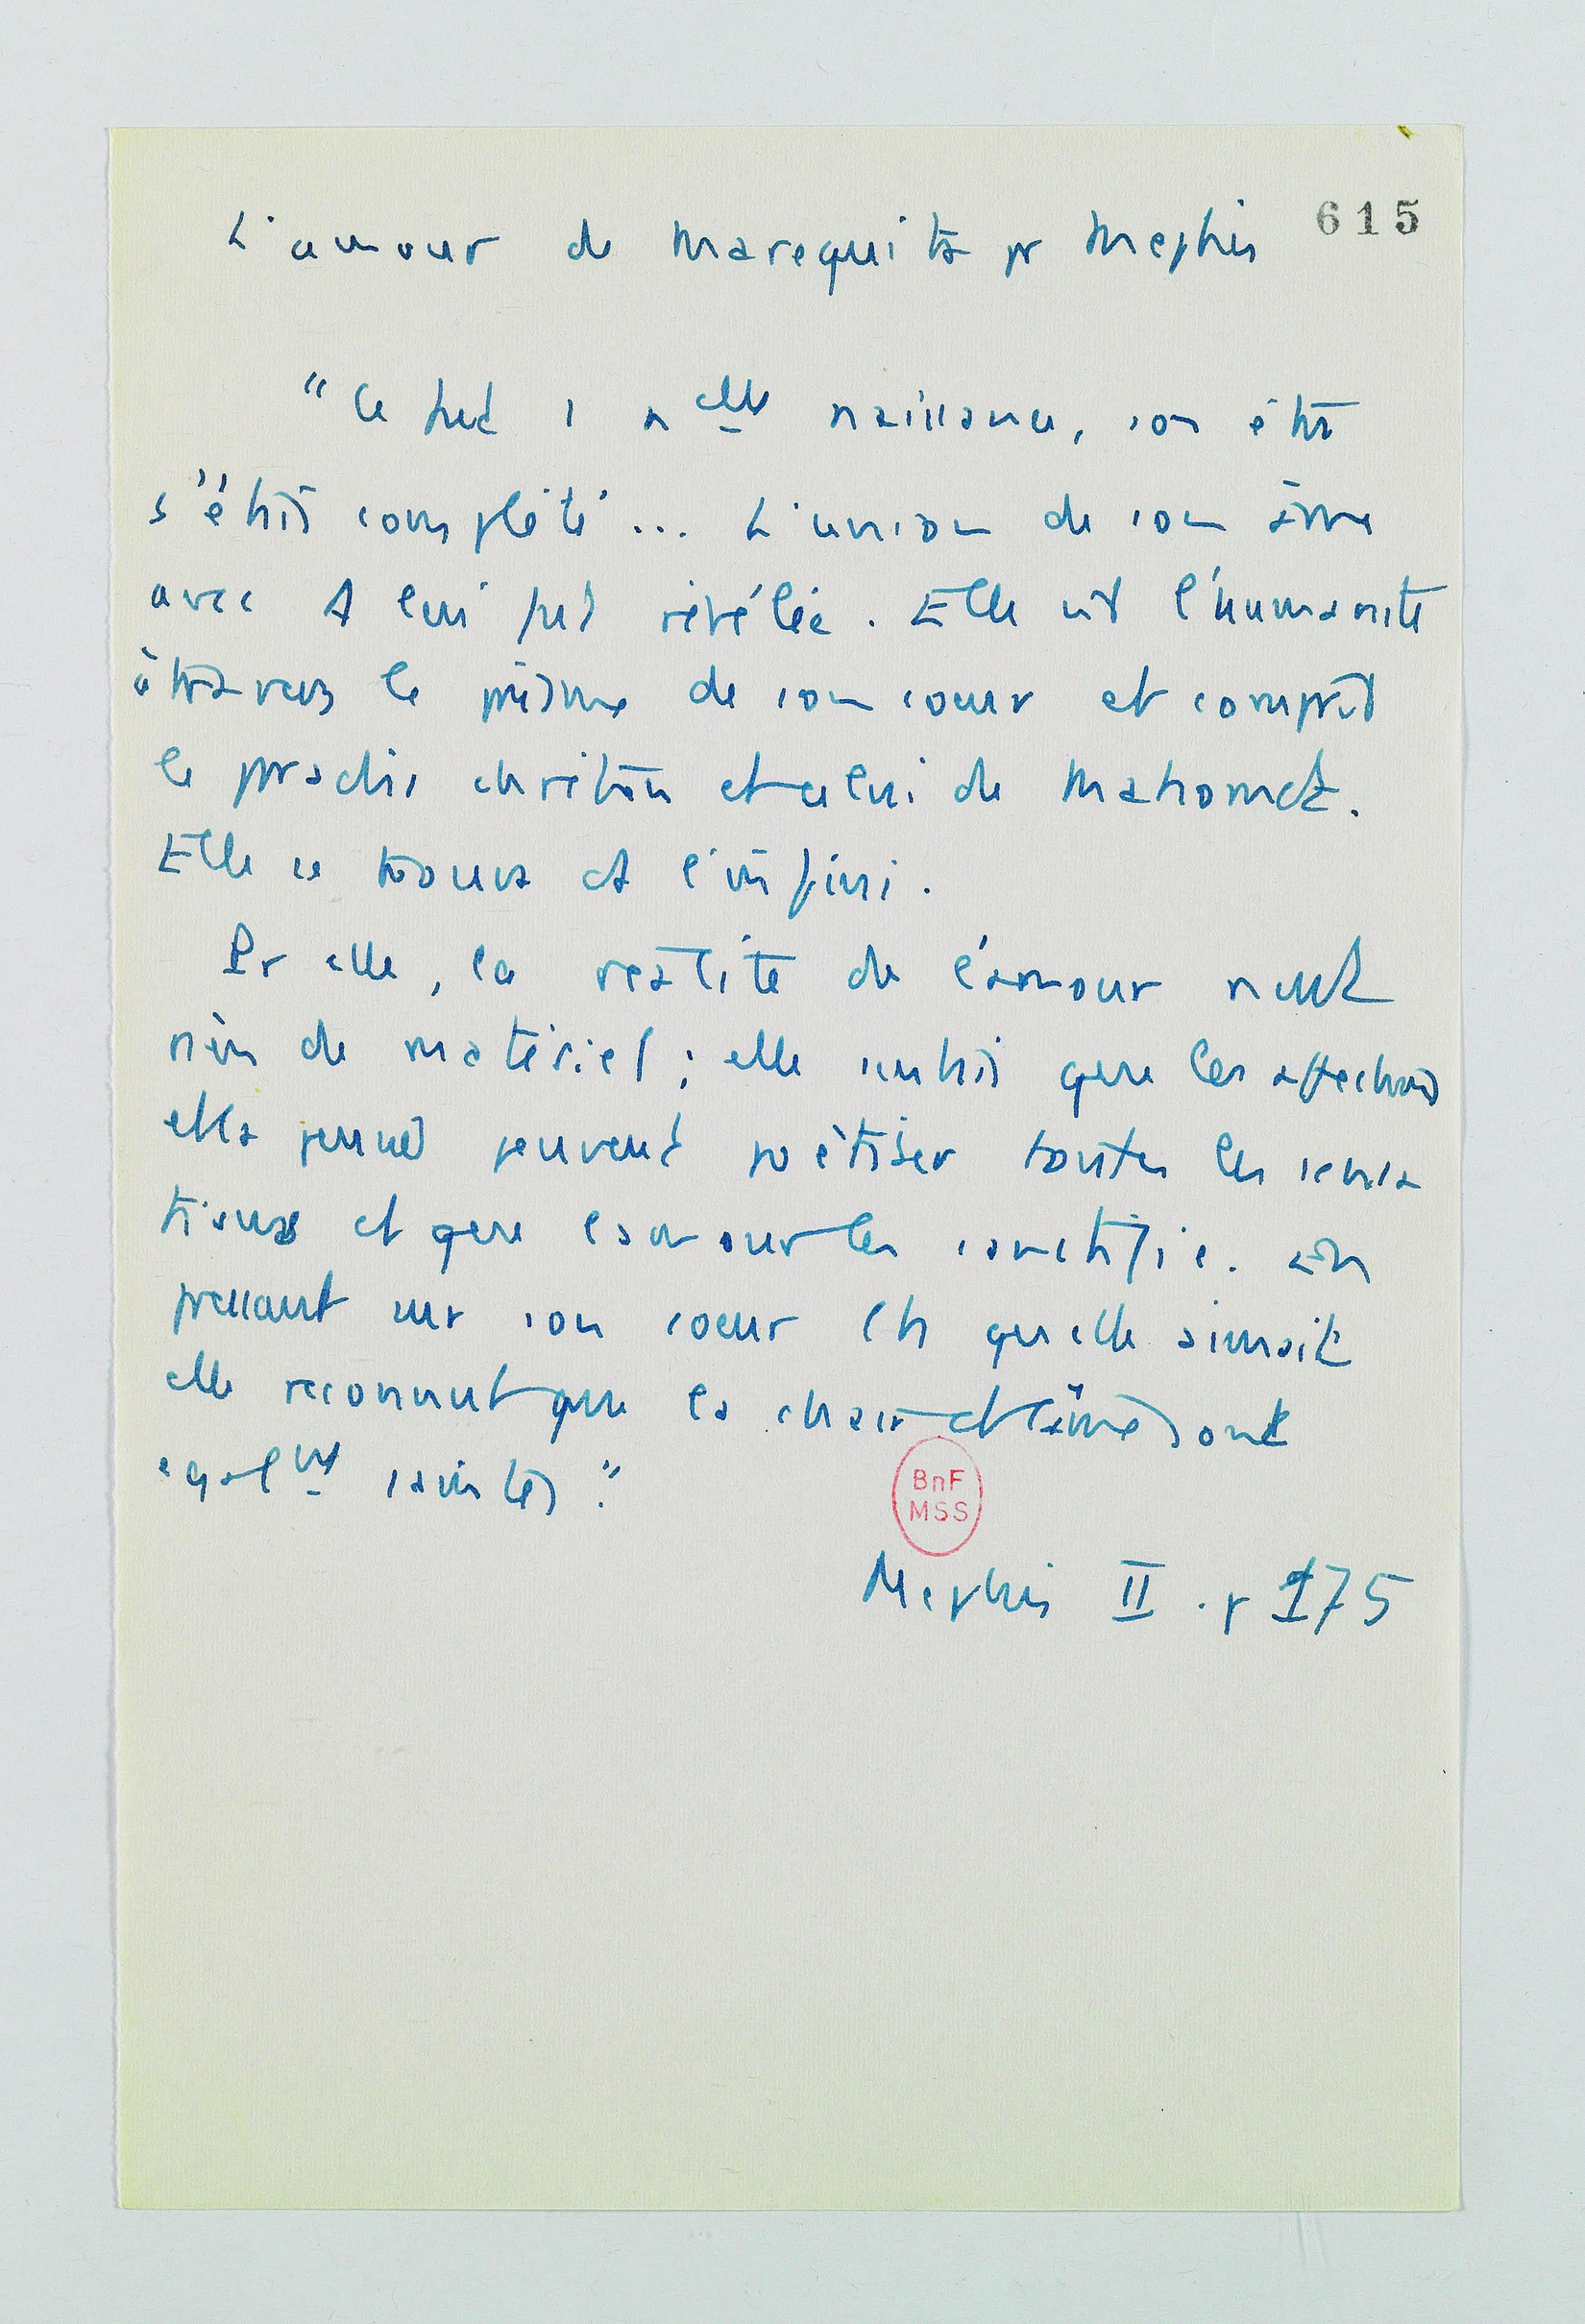 615
L'amour de Marequita pr Mephis
"Ce fut 1 nelle naissance, son être
s'était complété... L'union de son âme
avec A lui fut révélée. Elle vit l'humanité
à travers le prisme de son cœur et comprit
le pradis chrétien et celui de Mahomet.
Elle se trouva et l'infini.
Pr elle, la réalité de l'amour n'eut
rien de matériel ; elle sentait que les affections
elles peuvent poétiser toutes les sensa
tions et que l'amour les sanctifie. En
pressant sur son cœur qu'elle aimait
elle reconnut que la chair et l'âme sont
égalnt saintes."
BnF
MSS
Mephis II . p 175